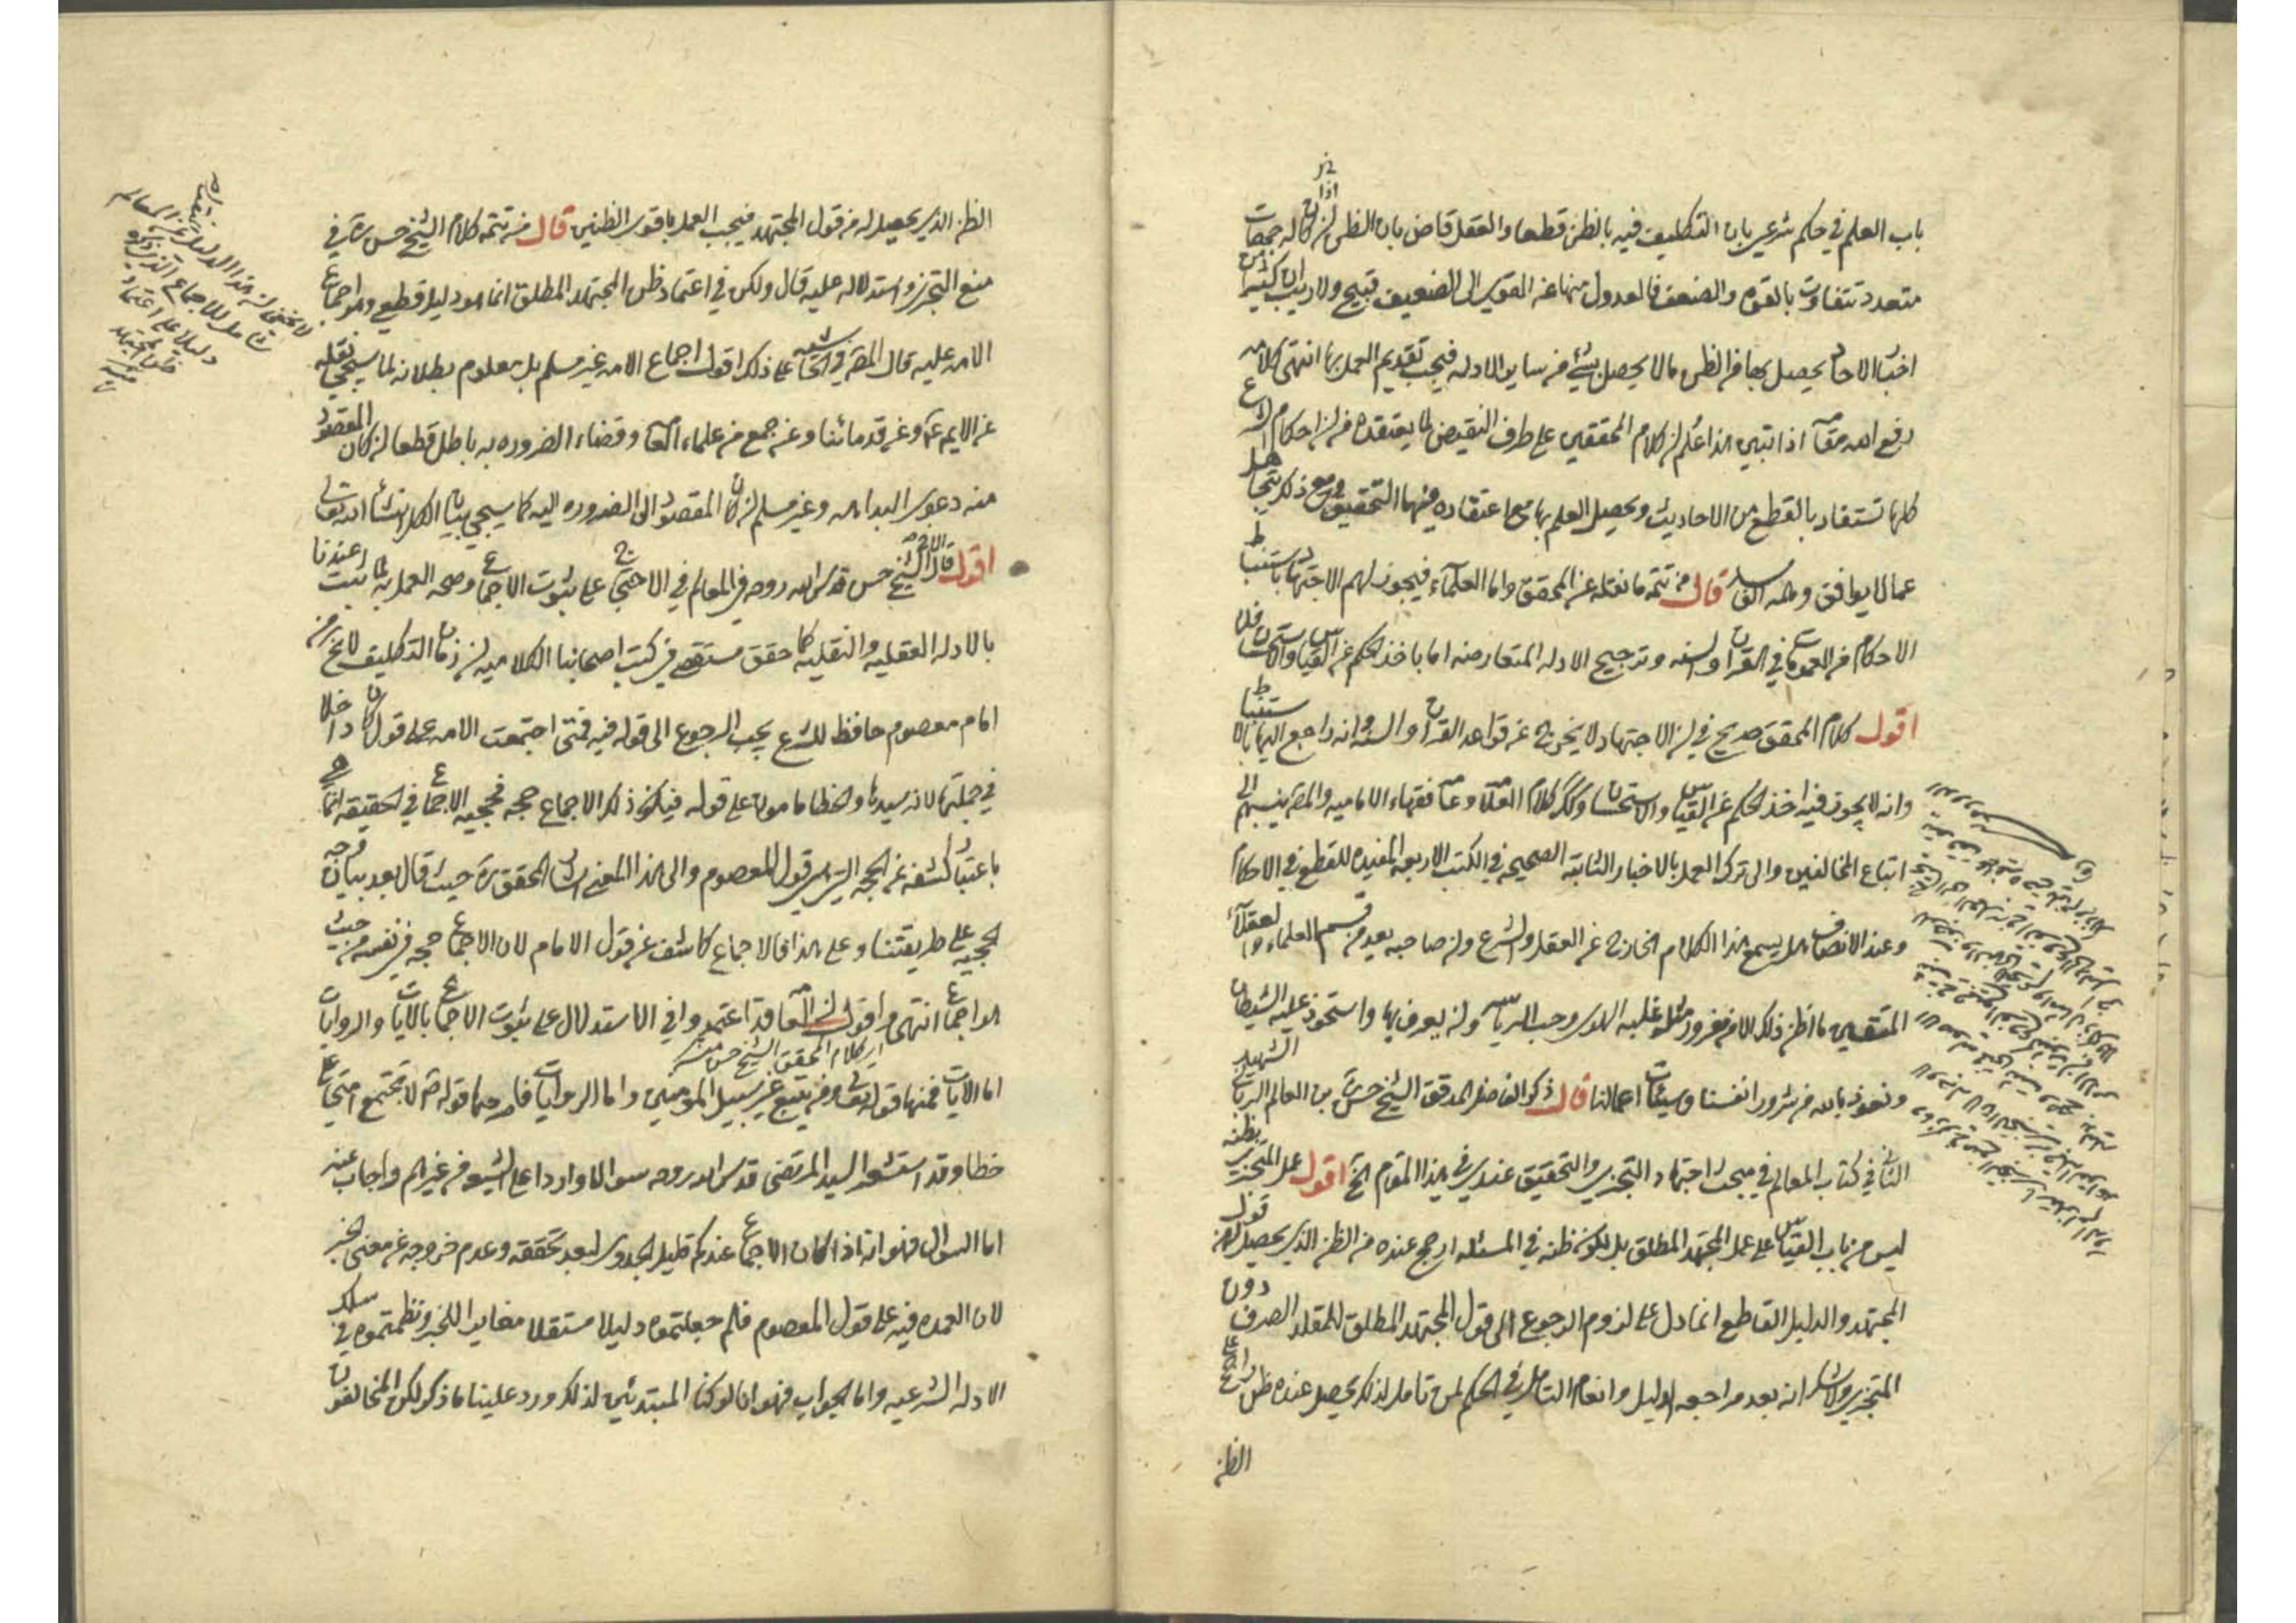 باب العلم في حكم شرعي بان التكليف فيه بالظن قطعا والعقل قاض بان الظن اذا كان له جهات
متعدد تتفاوت بالقوه والضعف فالعدول عنها عن القوي الى الضعيف قبيح ولا ريب ان كثيرا من
اخبار الاحاد يحصل بها من الظن ما لا يحصل بشئ من ساير الادله فيجب تقديم العمل بها انتهى كلامه
رفع الله مقامه اذا تبين هذا علم ان كلام المحققين على طرف النقيض لما يعتقده من ان احكام الشرع
كلها تستفاد بالقطع من الاحاديث وتحصيل العلم بها مع اعتقاده فيهما التحقيق ومع ذلك يتجاهل
عما لا يوافق وهمه الفاسد قال من تتمه ما نقله عن المحقق واما العلماء فيجوز لهم الاجتهاد باستنباط
الاحكام من العمومات في القران والسنه وترجيح الادله المتعارضه اما باخذ الحكم عن القياس والاستحسان فلا
اقول كلام المحقق صريح في ان الاجتهاد لا يخرج عن قواعد القران والسنه وانه راجع اليها بالاستنباط
وانه لا يجوز فيه اخذ الحكم عن القياس والاستحسان وكذلك كلام العلامه وعامه فقهاء الاماميه والمص ينسبهم الى
اتباع المخالفين والى ترك العمل بالاخبار الثابته الصحيحه في الكتب الاربعه المفيده للقطع في الاحكام
وعند الانصاف هل يسمع هذا الكلام الخارج عن العقل والشرع وان صاحبه يعد من قسم العلماء والعقلاء
المتقين ما اظن ذلك الا من مغرور مثله غلبه الهوى وحب الرياسه وان يعرف بها واستحوذ عليه الشيطان
ونعوذ بالله من شرور انفسنا وسيئات اعمالنا قال ذكر الفاضل المدقق الشيخ حسن بن العالم الرباني الشهيد
الثاني في كتاب المعالم في مبحث اجتهاد المتجزي والتحقيق عندي في هذا المقام الخ اقول عمل المتجزي بظنه
ليس من باب القياس على عمل المجتهد المطلق بل لكون ظنه في المسئله ارجح عنده من الظن الذي يحصل له من قول
المجتهد والدليل القاطع انما دل على لزوم الرجوع الى قول المجتهد المطلق للمقلد الصرف دون
المتجزي ولا شك انه بعد مراجعه الدليل وانعام التامل في الحكم لمن تامل لذلك يحصل عنده ظن راجح على
الظن
الظن الذي يحصل له من قول المجتهد فيجب العمل باقوى الظنين قال من تتمه كلام الشيخ حسن ره في
منع التجزي واستدلاله عليه قال ولكن في اعتماد ظن المجتهد المطلق انما هو دليل قطعي وهو اجماع
الامه عليه قال المص في الحاشيه على ذلك اقول اجماع الامه غير مسلم بل معلوم بطلانه لما سيجي نقله
عن الايمه ع وعن قدمائنا وعن جمع من علماء العامه وقضاء الضروره به باطل قطعا لان كان المقصود
منه دعوى البداهه وغير مسلم ان كان المقصود الى الضروره اليه كما سيجي بيان الكل انشا الله تعالى
اقول قال الشيخ حسن قدس الله روحه في المعالم في الاحتجاج على ثبوت الاجماع وصحه العمل به لما ثبت عندنا
بالادله العقليه والنقليه كما حقق مستقصى في كتب اصحابنا الكلاميه ان زمان التكليف لا يخلو من
امام معصوم حافظ للشرع يجب الرجوع الى قوله فيه فمتى اجتمعت الامه على قول كان داخلا
في جملتها لانه سيدها والخطا مامون على قوله فيكون ذلك الاجماع حجه فحجيه الاجماع في الحقيقه انما هي
باعتبار كشفه عن الحجه التي هي قول المعصوم والى هذا المعنى اشار المحقق ره حيث قال بعد بيان وجه
الحجيه على طريقتنا وعلى هذا فالاجماع كاشف عن قول الامام لا ان الاجماع حجه في نفسه من حيث
هو اجماع انتهى اقول ان العامه قد اعتمدوا في الاستدلال على ثبوت الاجماع بالايات والروايات
اي كلام المحقق الشيخ حسن
اما الايات فمنها قوله تعالى ومن يتبع غير سبيل المومنين واما الروايات فاوجهها قوله ص لا تجتمع امتي على
خطا وقد استشعر السيد المرتضى قدس الله روحه سوالا واردا على الشيعه من غيرهم واجاب عنه
اما السوال فهو انه اذا كان الاجماع عندكم قليل الجدوى لبعد تحققه وعدم خروجه عن معنى الخبر
لان العمده فيه على قول المعصوم فلم جعلتموه دليلا مستقلا مغايرا للخبر ونظمتموه في سلك
الادله الشرعيه واما الجواب فهو انا لو كنا المبتدئين لذلك ورد علينا ما ذكر لكن المخالفون